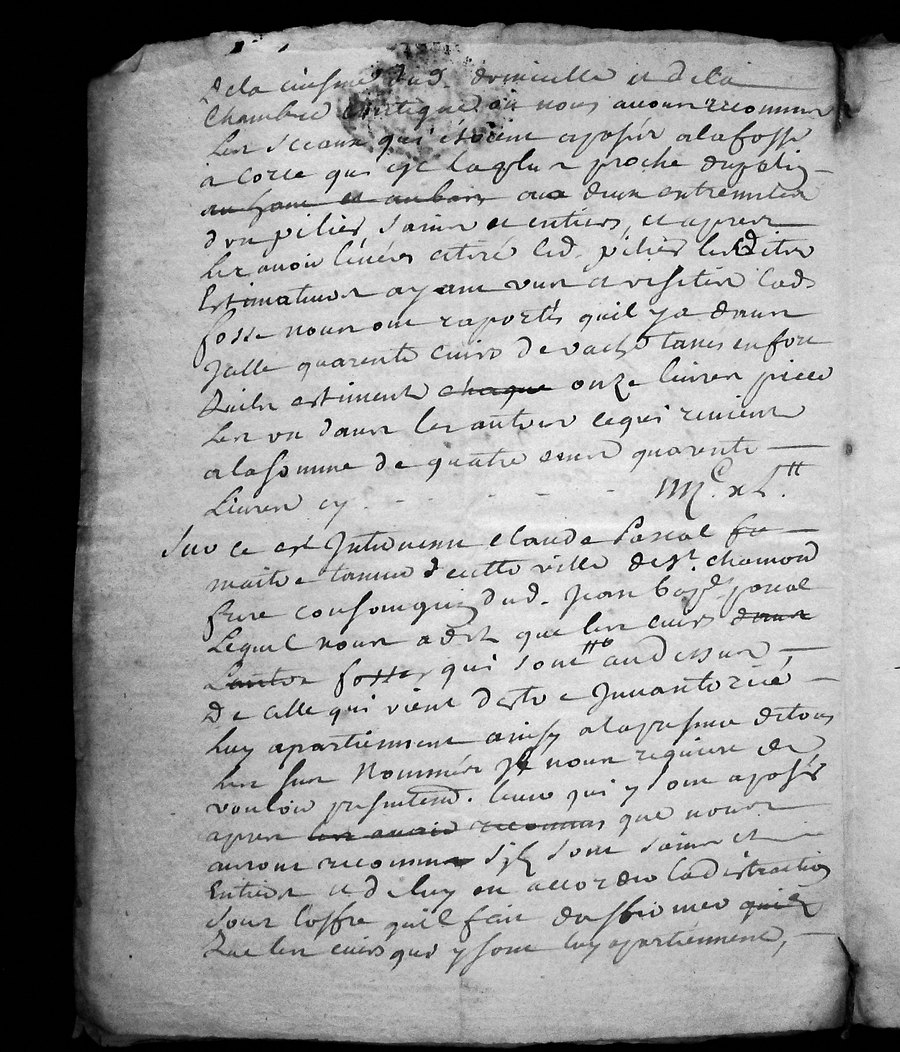 De la cuisine dud. domicille et de la
Chambre où nous avons reconnus
Les sceaux qui étoient aposés a la fosse
a Corce qui est la plus proche du
au haut et au bas aux deux extremites
d'un pilier sains et entiers, et apres
Les avoir levéés et led. pilier lesdites
Estimateurs ayant vus et visiter lad.
fosse nous ont raportés quil y a dans
Jcelle quarente cuirs de vache tanés en fort
Quils estiment chaque onze livres piece
Les un dans les autres ce qui revient
a la somme de quatre cents quarente
Livres cy - - - - IIIJc. xL.tt
Sur ce est Intervenu Claude Pascal
maitre tanneur de cette ville de St. chamond
frere consanguin dud. Jean bapt. pascal
Lequel nous a dit que les cuirs dans
L'autre fosse qui sont au dessus,
De celle qui vient d'estre Jnvantoriée
Luy apartiennent ainsy a la presence de tous
Les sus Nommés Je nous requiere de
vouloir ceux qui y ont aposés
apres les avoir reconnus que nous
aurons reconnus sils sont sains et
Entiers et de luy en accorder la distraction
sous l'offre quil fait d'affirmer quils
Que les cuirs qui y sont luy apartiennent,